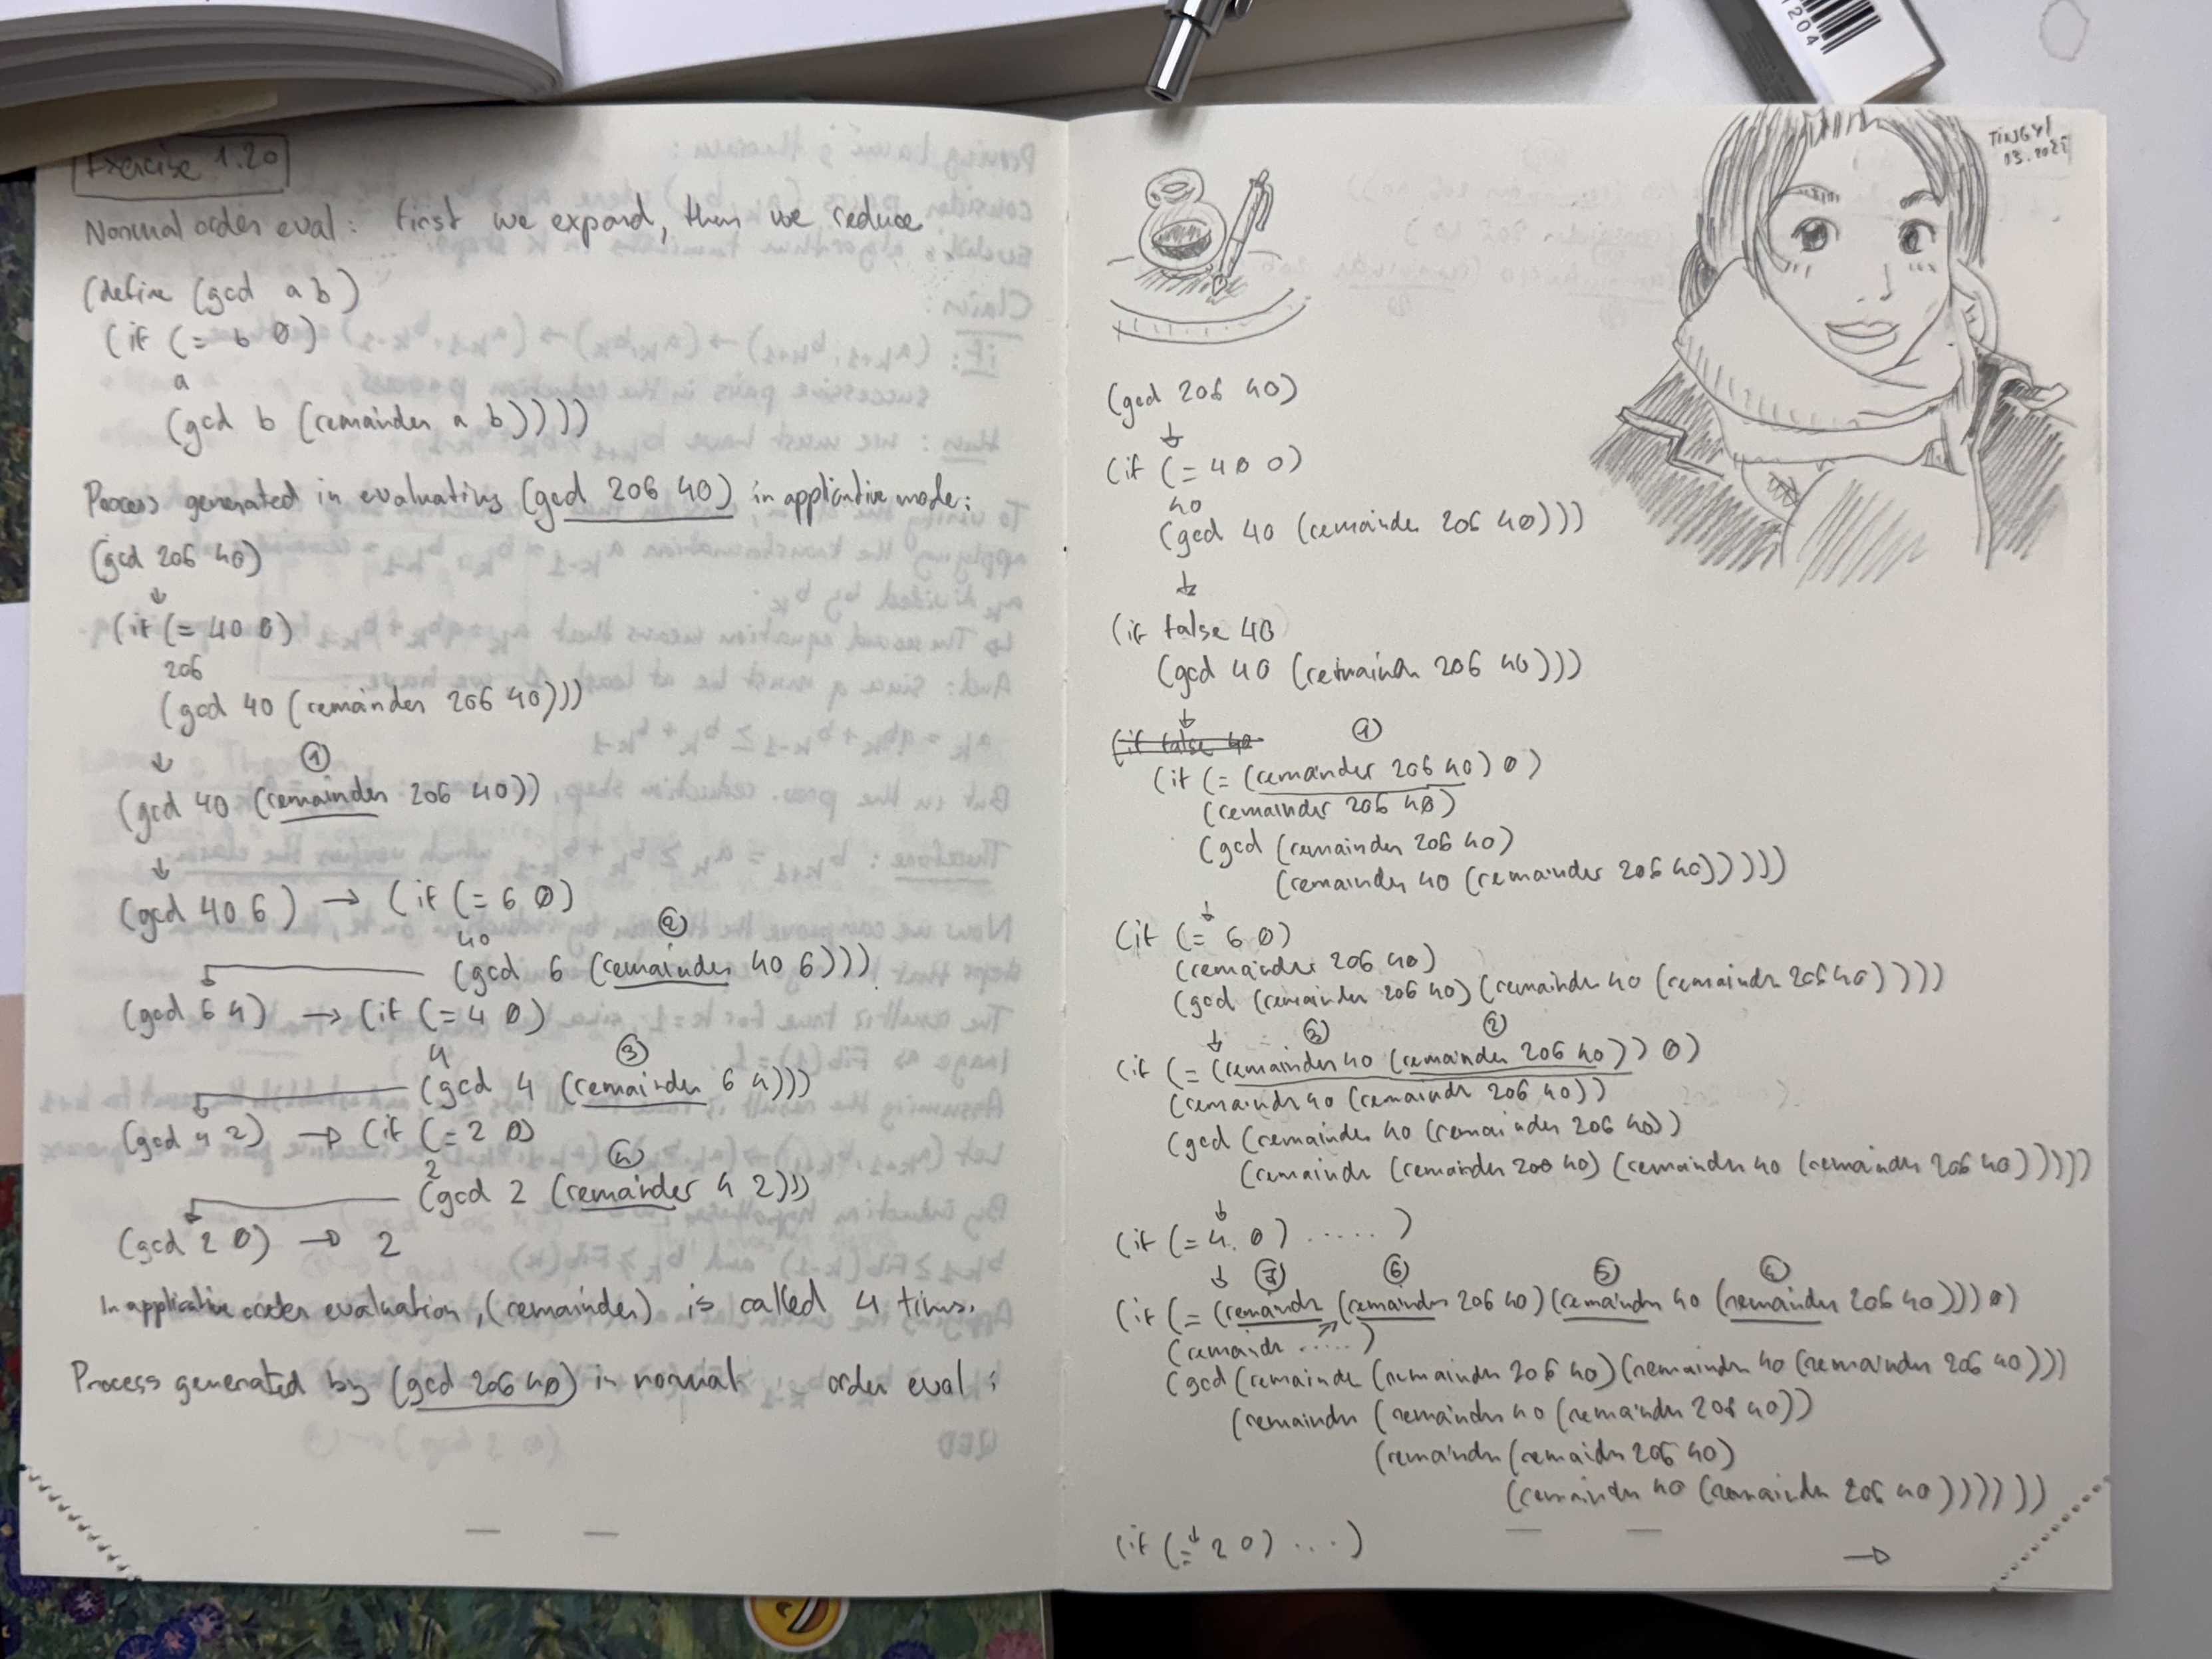 Exercise 1.20
Normal order eval: first we expand, then we reduce
(define (gcd a b)
(if (= b 0)
a
(gcd b (remainder a b))))
Process generated in evaluating (gcd 206 40) in applicative mode:
(gcd 206 40)
↓
(if (= 40 0)
206
(gcd 40 (remainder 206 40)))
↓ ①
(gcd 40 (remainder 206 40))
↓
(gcd 40 6) → (if (= 6 0)
40 ②
(gcd 6 (remainder 40 6)))
(gcd 6 4) → (if (= 4 0)
4 ③
(gcd 4 (remainder 6 4)))
(gcd 4 2) → (if (= 2 0)
2 ④
(gcd 2 (remainder 4 2)))
(gcd 2 0) → 2
In applicative order evaluation, (remainder) is called 4 times.
Process generated by (gcd 206 40) in normal order eval:
TINGYI
03.2025
(gcd 206 40)
↓
(if (= 40 0)
40
(gcd 40 (remainder 206 40)))
↓
(if false 40
(gcd 40 (remainder 206 40)))
↓
(if false 40 ①
(if (= (remainder 206 40) 0)
(remainder 206 40)
(gcd (remainder 206 40)
(remainder 40 (remainder 206 40)))))
↓
(if (= 6 0)
(remainder 206 40)
(gcd (remainder 206 40) (remainder 40 (remainder 206 40))))
↓ ③ ②
(if (= (remainder 40 (remainder 206 40)) 0)
(remainder 40 (remainder 206 40))
(gcd (remainder 40 (remainder 206 40))
(remainder (remainder 206 40) (remainder 40 (remainder 206 40)))))
↓
(if (= 4 0) ......)
↓ ⑦ ⑥ ⑤ ④
(if (= (remainder (remainder 206 40) (remainder 40 (remainder 206 40))) 0)
(remainder .....)
(gcd (remainder (remainder 206 40) (remainder 40 (remainder 206 40)))
(remainder (remainder 40 (remainder 206 40))
(remainder (remainder 206 40)
(remainder 40 (remainder 206 40))))))
↓
(if (= 2 0) ....)
→